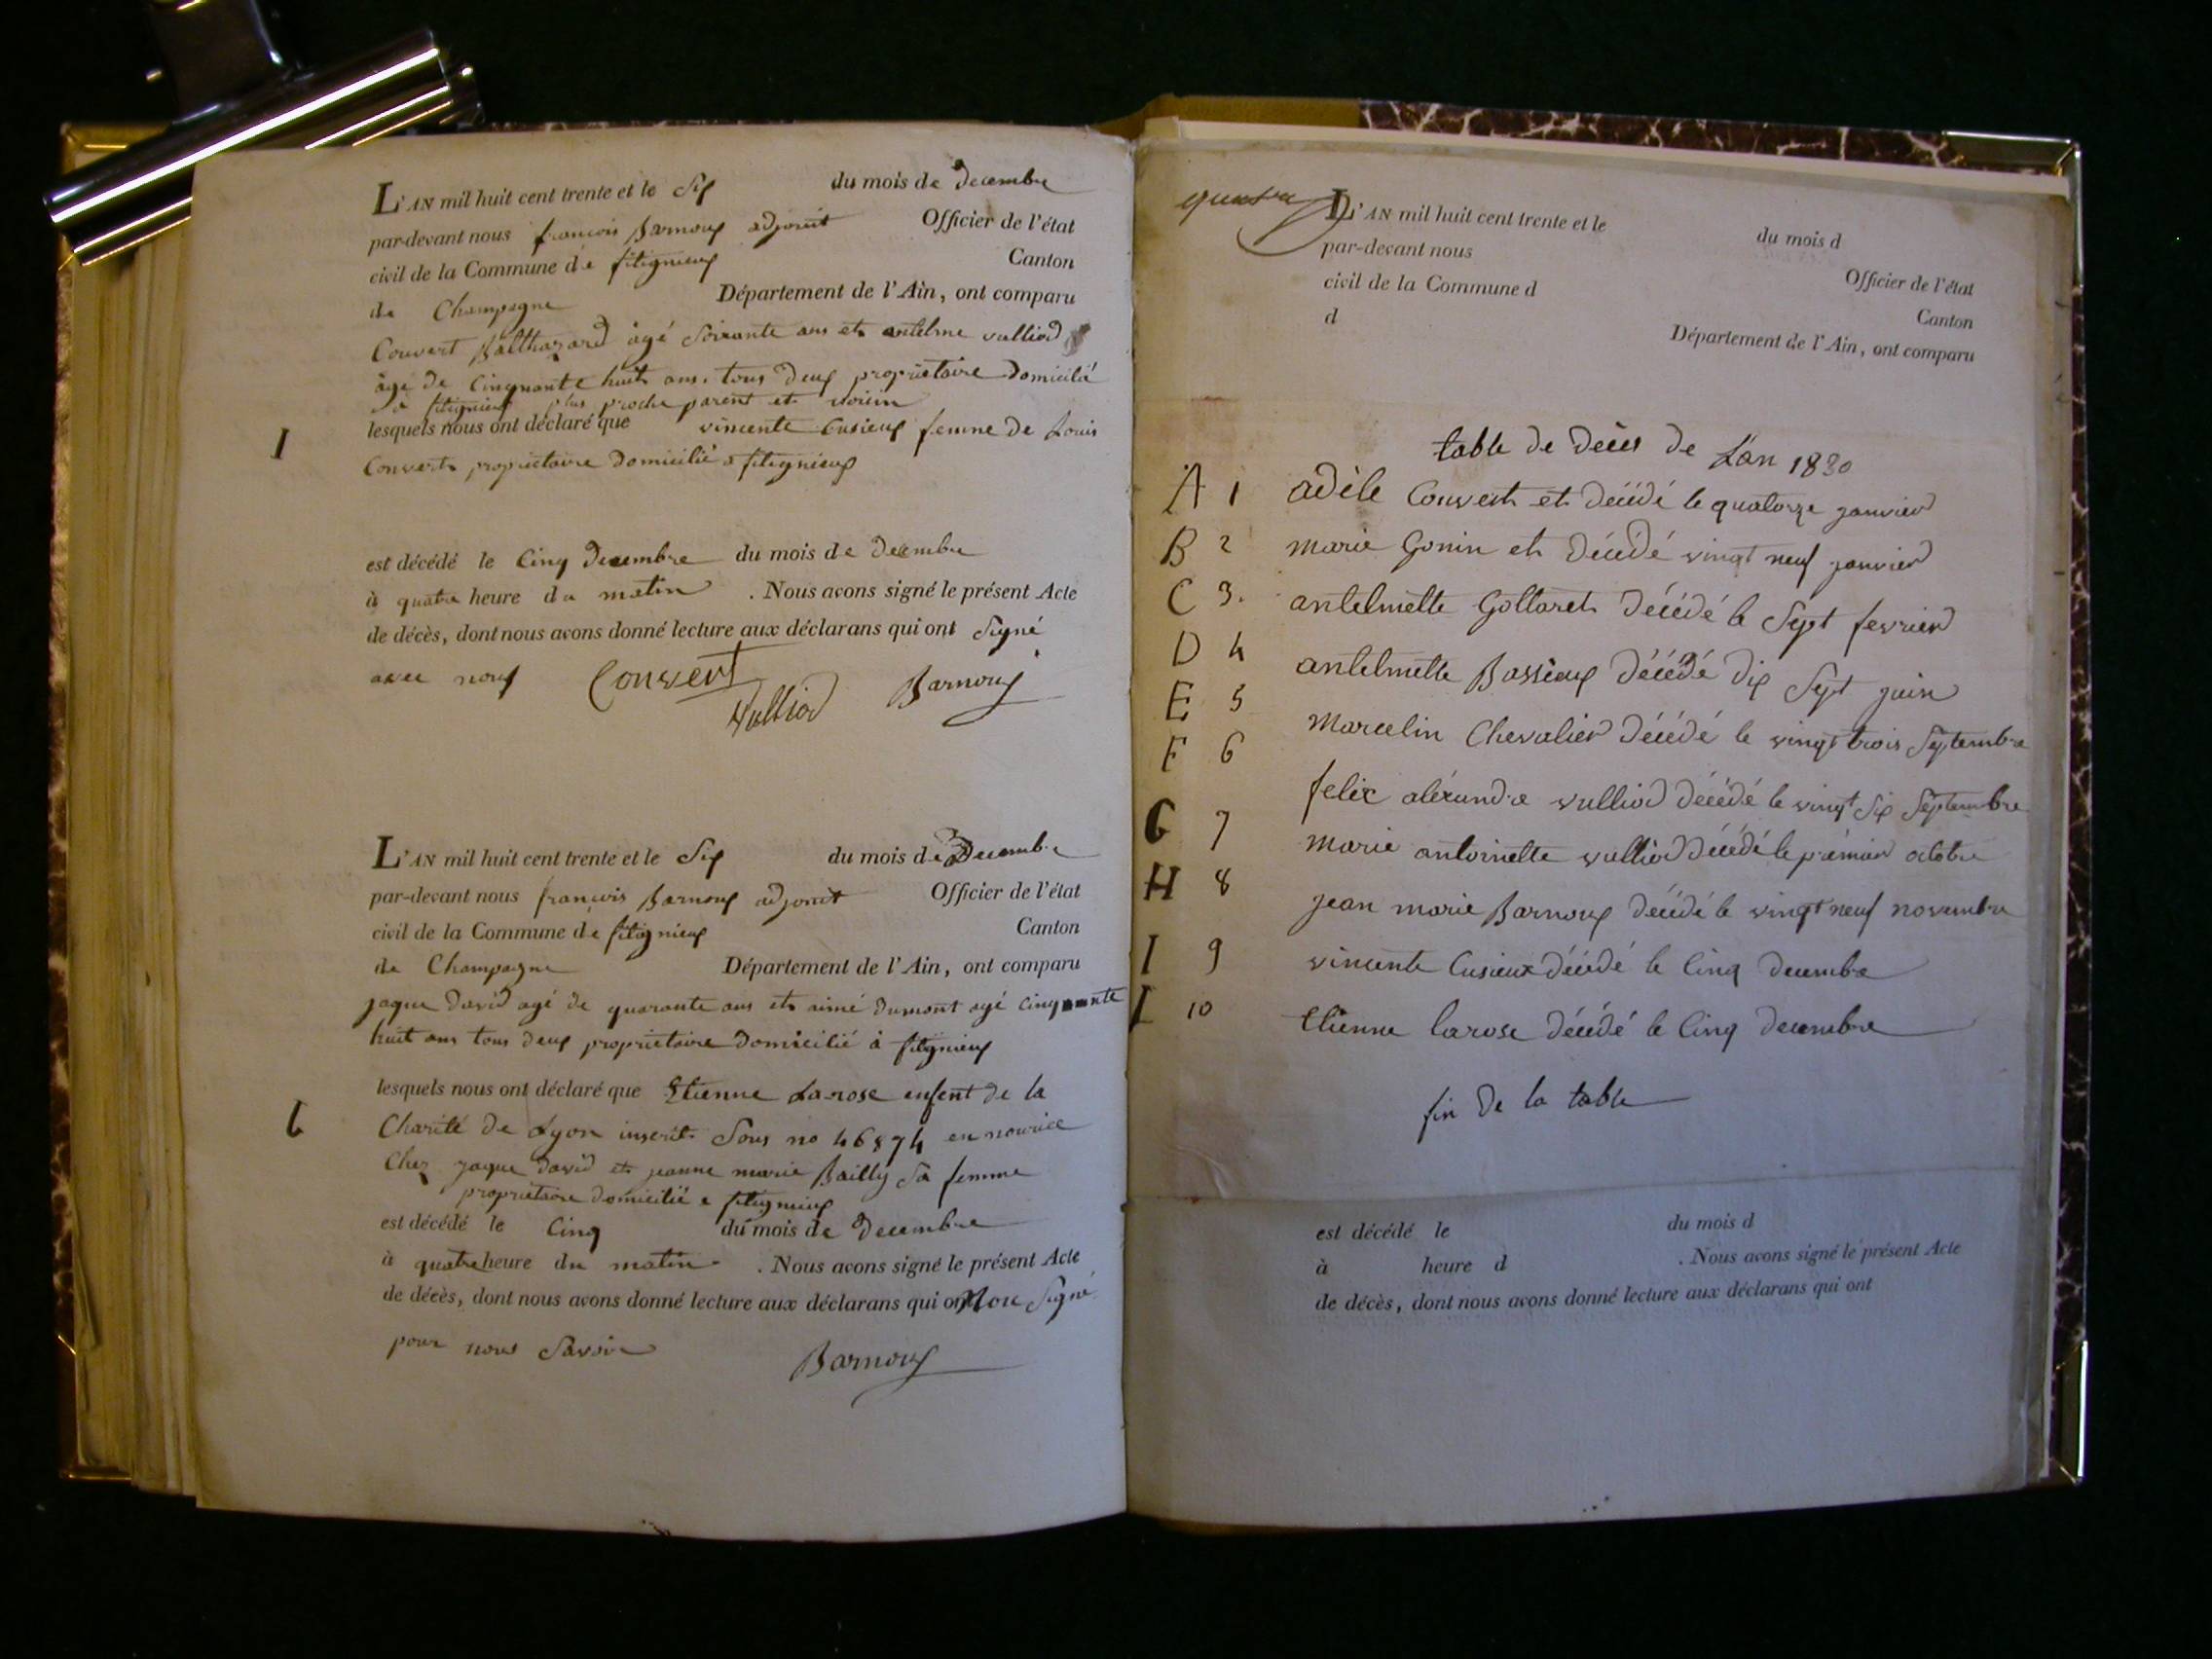 L'AN mil huit cent trente et le Six du mois de decembre
par-devant nous françois Barnoux adjoint Officier de l'état
civil de la Commune de fitignieux Canton
de Champagne Département de l'Ain, ont comparu
Convert Balthazard âgé Soixante ans et antelme vulliod
âgé de Cinquante huit ans. tous deux propriétaire Domicilié
a fitignieux plus proche parent et voisin
lesquels nous ont déclaré que vincente Cusieux femme de Louis
I
Convert propriétaire Domicilié a fitignieux
est décédé le Cinq Decembre du mois de decembre
à quatre heure du matin . Nous avons signé le présent Acte
de décès, dont nous avons donné lecture aux déclarans qui ont Signé
avec nous Convert Barnoux
Vulliod
L'AN mil huit cent trente et le Six du mois de Decembre
par-devant nous françois Barnoux adjoint Officier de l'état
civil de la Commune de fitignieux Canton
de Champagne Département de l'Ain, ont comparu
jaque David agé de quarante ans et aimé Dumont agé cinquante
huit ans tous deux propriétaire Domicilié à fitignieux
lesquels nous ont déclaré que Etienne Larose enfent de la
L
Charité de Lyon inscrit Sous no 46874 en nourice
Chez jaque David et jeanne marie Bailly Sa femme
propriétaire domicilié a fitignieux
est décédé le Cinq du mois de Decembre
à quatre heure du matin . Nous avons signé le présent Acte
de décès, dont nous avons donné lecture aux déclarans qui ont Non Signé
pour nous Savoir Barnoux
quatre
L'AN mil huit cent trente et le du mois d
par-devant nous Officier de l'état
civil de la Commune d Canton
d Département de l'Ain, ont comparu
table de Deces de L'an 1830
A 1 adèle Convert et Décédé le quatorze janvier
B 2 marie Gonin et Décédé vingt neuf janvier
C 3. antelmette Gottaret Décédé le Sept fevrier
D 4 antelmette Bassieux décédé dix Sept juin
E 5 Marcelin Chevalier Décédé le vingt trois Septembre
F 6 felix aléxandre vulliod Décédé le vingt Six Septembre
G 7 marie antoinette vulliod Décédé le prémier octobre
H 8 jean marie Barnoux Décédé le vingt neuf novembre
I 9 vincente Cusieux décédé le Cinq Decembre
L 10 Etienne Larose décédé le Cinq decembre
fin De la table
est décédé le du mois d
à heure d . Nous avons signé le présent Acte
de décès, dont nous avons donné lecture aux déclarans qui ont